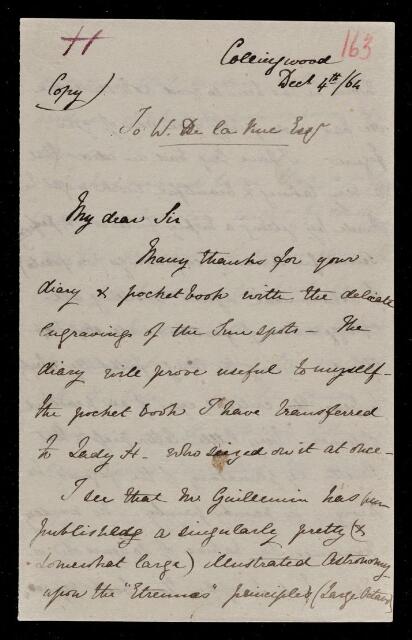 H
163
Collingwood
Decr 4th/64
Copy)
To W. De la Rue Esqr
My dear Sir
Many thanks for your
diary & pocket book with the delicate
engravings of the Sun spots – The
diary will prove useful to myself –
the pocket book I have transferred
to Lady H – who seized on it at once –
I see that Mr Guillemin has
published a singularly pretty (&
somewhat large) illustrated Astronomy
upon the "Etrennes" principle (Large Octavo)